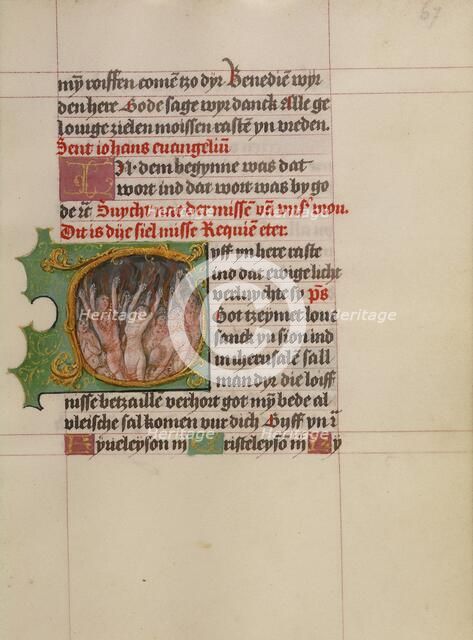 67
mÿ roiffen comē tzo dyr Benediē wyr
den here Gode sage wyr danck Alle ge
louige zielen moissen rastē yn vreden.
Sent iohans euangeliū
In dem begynne was dat
wort ind dat wort was by go
de rc̄
Dit is dÿe siel misse Requiē eter.
yff yn here raste
ind dat ewige licht
verluychte sy ps̄
Got tzeymet loue
sanck yn sion ind
in iherusalē sall
man dyr die loiff
nisse betzaille verhort got mȳ bede al
vleische sal komen vur dich Gyff yn rc̄
Kyueleyson iij Cristeleyso iij Ky
Heritage
Heritage
Heritage
Heritage
Heritage